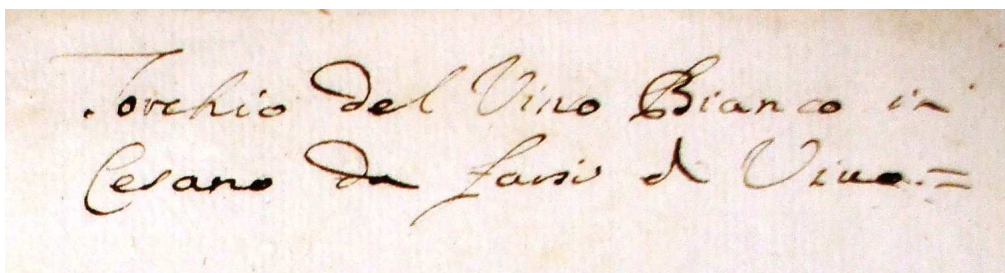 Torchio del Vino Bianco in
Cesano da farsi di Vivo.=